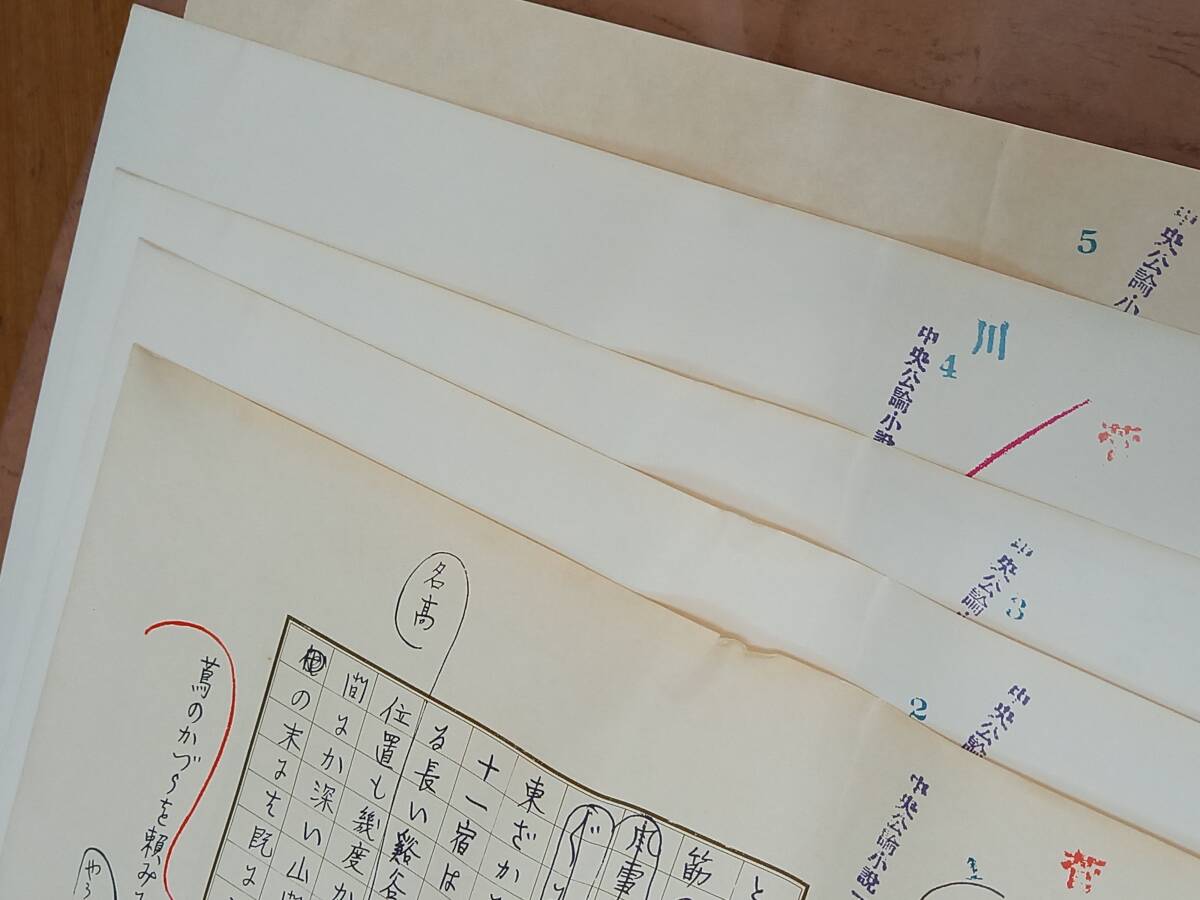 5
中央公論・小
川
4
中央公論・小説
3
中央公論
2
中央公
中央公論小説
と
筋
東ざか
十一宿は
る長い谿谷
位置も幾度か
間にか深い山
の末には既に
名高
蔦のかづらを頼み